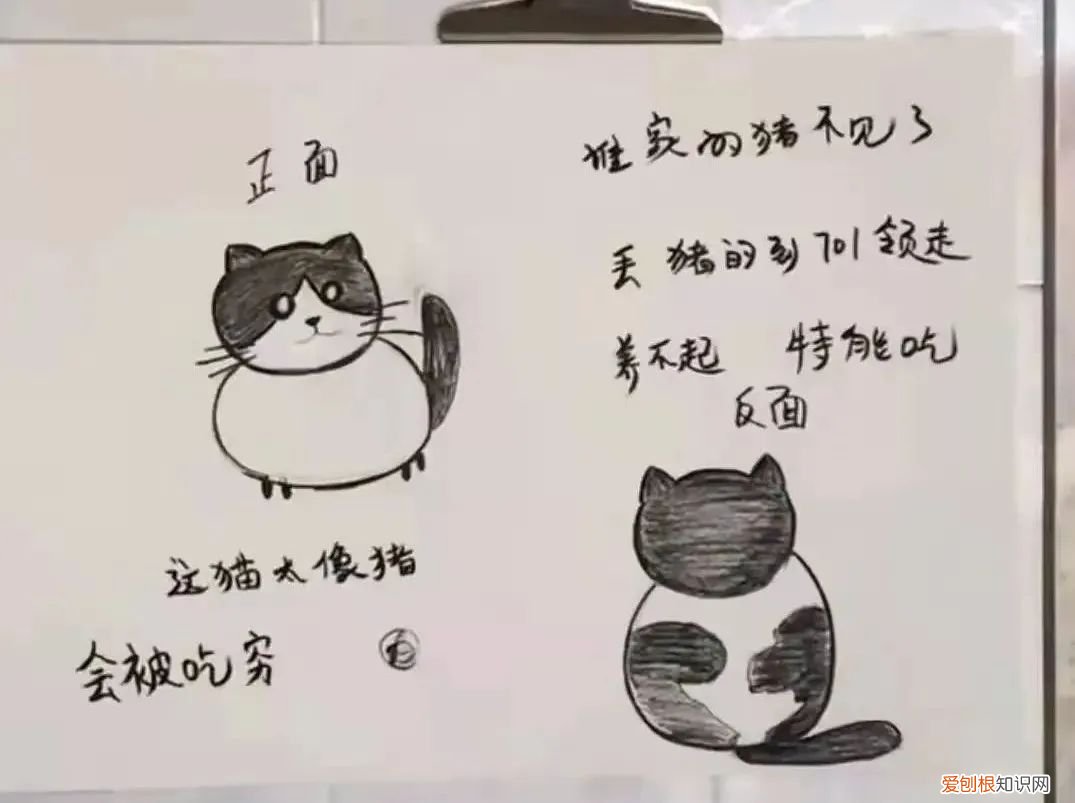 正面
谁家的猪不见了
丢猪的到701领走
养不起 特能吃
反面
这猫太像猪
会被吃穷
爱刨根知识网